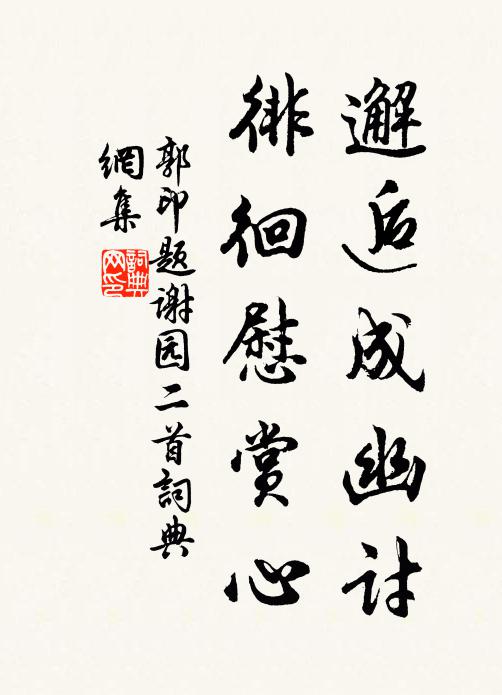 邂逅成幽討
徘徊慰賞心
郭印题谢园二首詞典
網集
詞典
网印